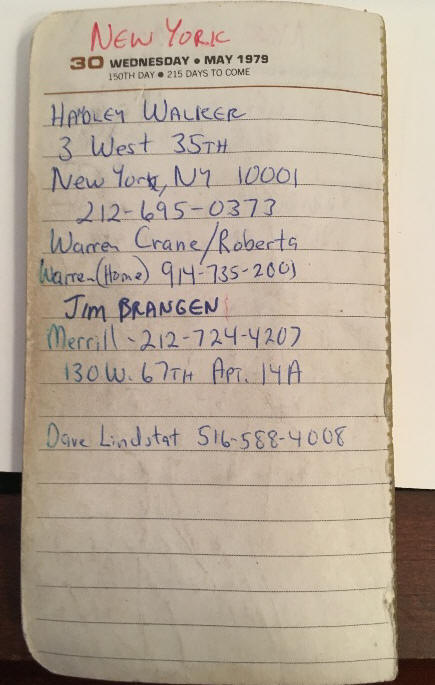 NEW YORK
30 WEDNESDAY • MAY 1979
150TH DAY • 215 DAYS TO COME
HADLEY WALKER
3 West 35TH
New York, NY 10001
212-695-0373
Warren Crane/Roberta
Warren (Home) 914-735-2001
JIM BRANGEN
Merrill - 212-724-4207
130 W. 67TH APT. 14A
Dave Lindstat 516-588-4008